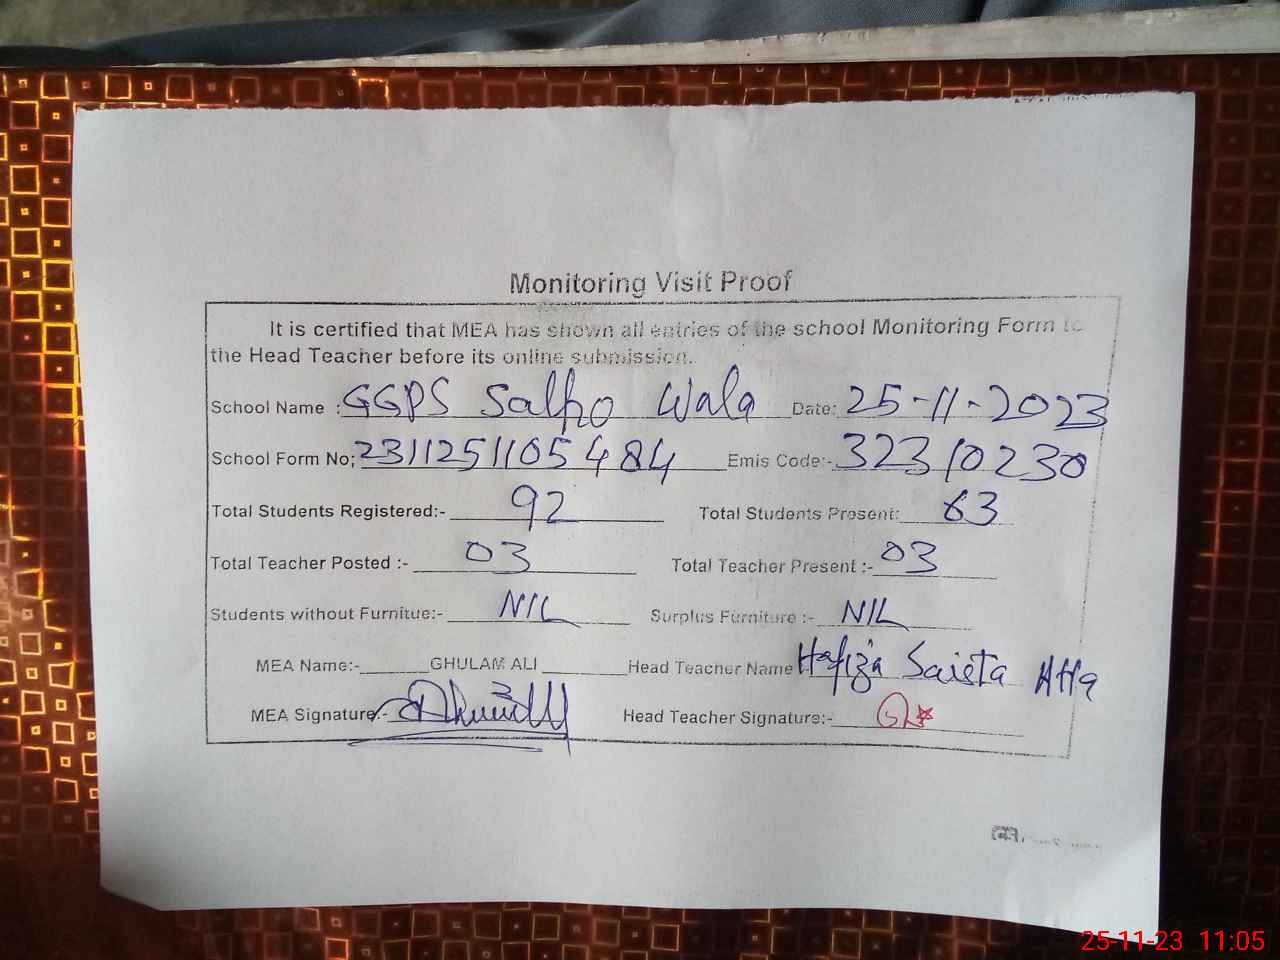 Monitoring Visit Proof
It is certified that MEA has shown all entries of the school Monitoring Form to
the Head Teacher before its online submission.
School Name :GGPS Salho Wala Date: 25-11-2023
School Form No; 2311251105484 Emis Code:- 32310230
Total Students Registered:- 92 Total Students Present: 63
Total Teacher Posted :- 03 Total Teacher Present :- 03
Students without Furnitue:- NIL Surplus Furniture :- NIL
MEA Name:- GHULAM ALI Head Teacher Name Hafiza Saieta Atta
MEA Signature:- Head Teacher Signature:-
25-11-23 11:05